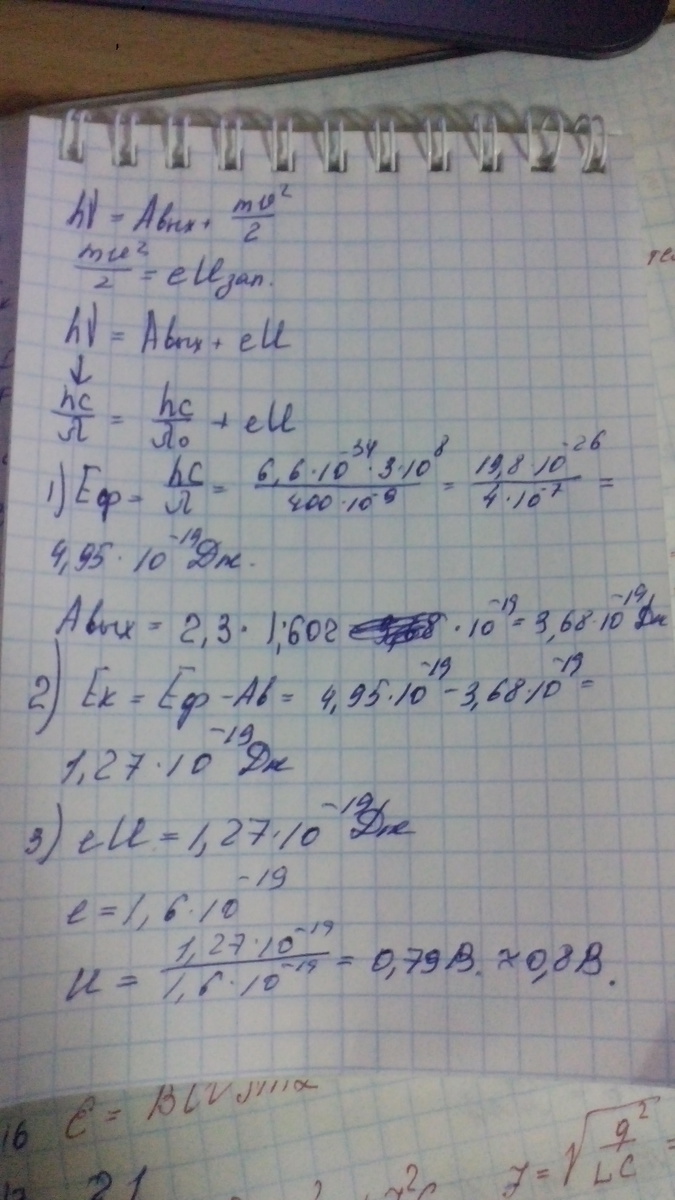 hν = Aвых + mv²/2
mv²/2 = eUзап.
hν = Aвых + eU
↓
hc/λ = hc/λ₀ + eU
1) Eф = hc/λ = 6,6·10⁻³⁴·3·10⁸/400·10⁻⁹ = 19,8·10⁻²⁶/4·10⁻⁷ =
4,95·10⁻¹⁹ Дж.
Aвых = 2,3·1,602 ·10⁻¹⁹ = 3,68·10⁻¹⁹ Дж
2) Eк = Eф − Aв = 4,95·10⁻¹⁹ − 3,68·10⁻¹⁹ =
1,27·10⁻¹⁹ Дж
3) eU = 1,27·10⁻¹⁹ Дж
e = 1,6·10⁻¹⁹
U = 1,27·10⁻¹⁹/1,6·10⁻¹⁹ = 0,79В. ≈ 0,8В.
16 ℰ = BLV sinα